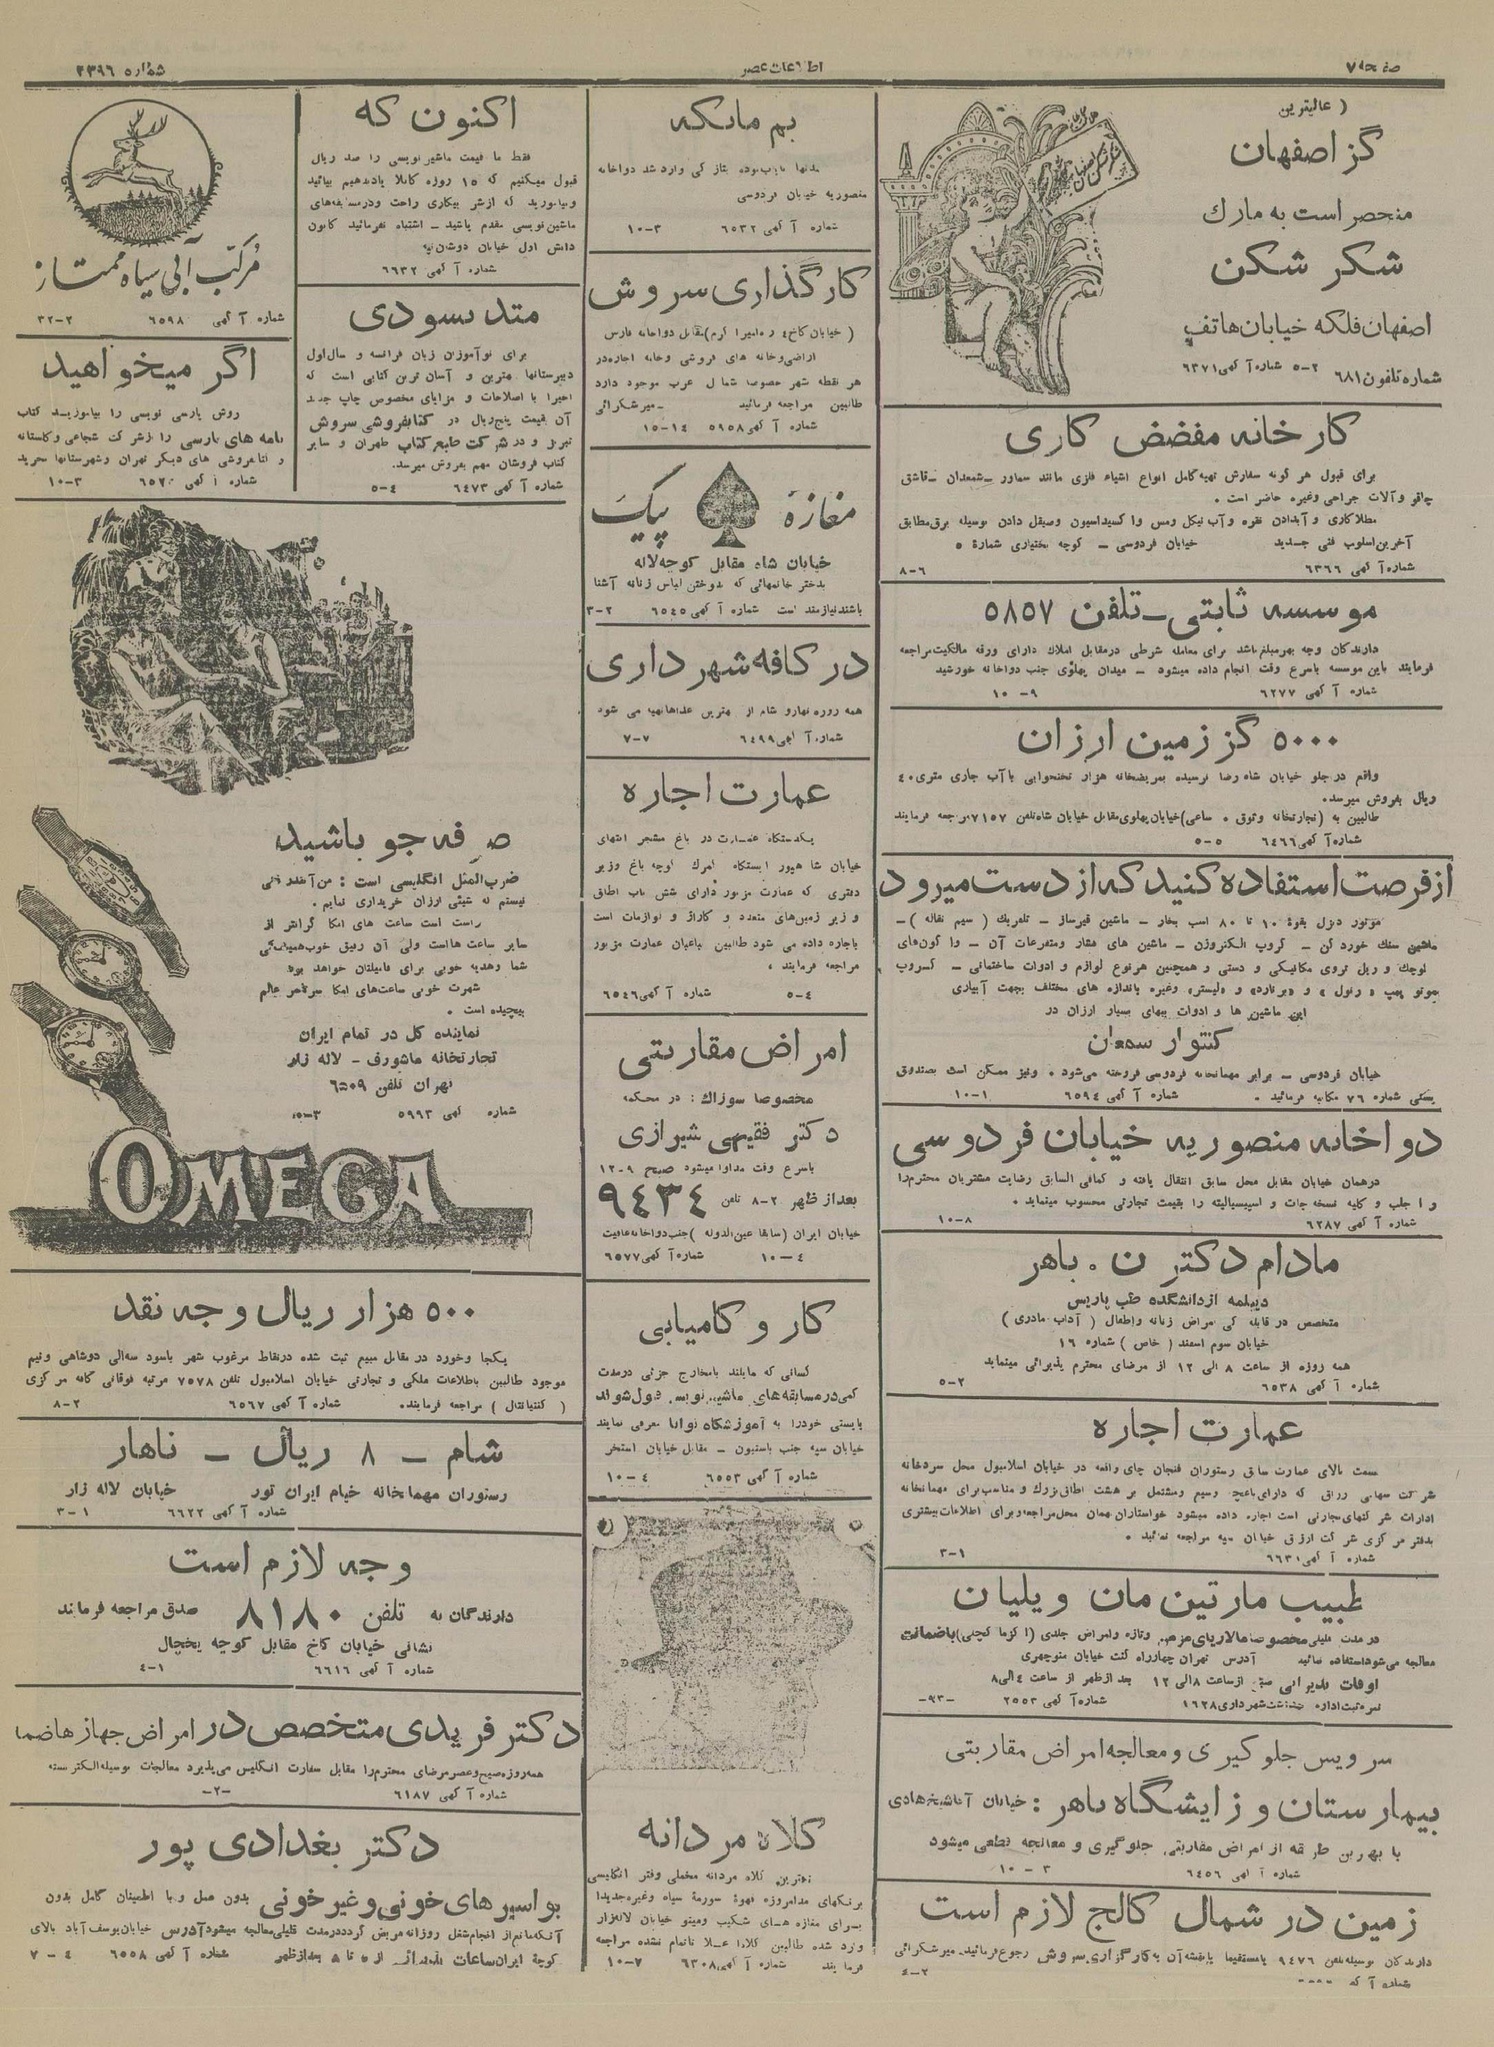 صفحه ۷
اطلاعات عصر
شماره ۳۳۹۶
( عالیترین
گز اصفهان
منحصر است به مارك
شکر شکن
اصفهان فلکه خیابان هاتف
شماره تلفون ۶۸۱ ۲-۵ شماره آگهی ۶۳۷۱
کارخانه مفضض کاری
برای قبول هر گونه سفارش تهیه کامل انواع اشیاء فلزی مانند سماور – شمعدان – قاشق
چاقو و آلات جراحی وغیره حاضر است .
مطلاکاری و آبدادن نقره و آب نیکل ومس واکسیداسیون وصیقل دادن بوسیله برق مطابق
آخرین اسلوب فنی جدید خیابان فردوسی – کوچه بختیاری شماره ۵
شماره آگهی ۶۳۶۶ ۶-۸
موسسه ثابتی – تلفن ۵۸۵۷
دارندگان وجه بهر مبلغ باشد برای معامله شرطی در مقابل املاك دارای ورقه مالکیت مراجعه
فرمایند باین موسسه باسرع وقت انجام داده میشود – میدان پهلوی جنب دواخانه خورشید
شماره آگهی ۶۲۷۷ ۹-۱۰
۵۰۰۰ گز زمین ارزان
واقع در جلو خیابان شاه رضا نرسیده بمریضخانه هزار تختخوابی با آب جاری متری ۴۰
ریال بفروش میرسد.
طالبین به (تجارتخانه وثوق . ساعی) خیابان پهلوی مقابل خیابان شاه تلفن ۷۱۵۷ مراجعه فرمایند
شماره آگهی ۶۴۶۶ ۵-۵
از فرصت استفاده کنید که از دست میرود
موتور دیزل بقوه ۱۰ تا ۸۰ اسب بخار – ماشین قیرساز – تلفریك (سیم نقاله) –
ماشین سنك خورد کن – گروپ الکتروژن – ماشین های حفار ومتفرعات آن – واگون های
کوچك و ریل تروی مکانیکی و دستی و همچنین هر نوع لوازم و ادوات ساختمانی – گروپ
موتو پمپ « رنول » و «برنارد» و «لیستر» وغیره باندازه های مختلف بجهت آبیاری
این ماشین ها و ادوات ببهای بسیار ارزان در
کنتوار سمعان
خیابان فردوسی – برابر مهمانخانه فردوسی فروخته می‌شود . ونیز ممکن است بصندوق
پستی شماره ۷۶ مکاتبه فرمائید . شماره آگهی ۶۵۹۴ ۱-۱۰
دواخانه منصوریه خیابان فردوسی
در همان خیابان مقابل محل سابق انتقال یافته و کمافی السابق رضایت مشتریان محترم را
را جلب و کلیه نسخه جات و اسپسیالیته را بقیمت تجارتی محسوب مینماید .
شماره آگهی ۶۲۸۷ ۸-۱۰
مادام دکتر ن . باهر
دیپلمه از دانشگده طب پاریس
متخصص در قابله گی امراض زنانه واطفال ( آداب مادری )
خیابان سوم اسفند ( خاص ) شماره ۱۶
همه روزه از ساعت ۸ الی ۱۲ از مرضای محترم پذیرائی مینماید
شماره آگهی ۶۵۳۸ ۲-۵
عمارت اجاره
سمت بالای عمارت سابق رستوران فنجان چای واقعه در خیابان اسلامبول محل سردخانه
شرکت سهامی رزاق که دارای باغچه وسیع ومشتمل بر هشت اطاق بزرك و مناسب برای مهمانخانه
ادارات شرکتهای تجارتی است اجاره داده میشود خواستاران بهمان محل مراجعه و برای اطلاعات بیشتری
بدفتر مرکزی شرکت ارزاق خیابان سپه مراجعه نمائید .
شماره آگهی ۶۶۳۱ ۱-۳
طبیب مارتین مان ویلیان
در مدت قلیلی مخصوصا مالاریای مزمن وتازه وامراض جلدی (اگزما کچلی) باضمانت
معالجه می‌شود استفاده نمائید آدرس تهران چهارراه کنت خیابان منوچهری
اوقات پذیرائی صبح از ساعت ۸ الی ۱۲ بعد از ظهر از ساعت ۴ الی ۸
نمره ثبت اداره بهداشت شهرداری ۱۶۲۸ شماره آگهی ۲۵۵۳ –۹۳–
سرویس جلوگیری ومعالجه امراض مقاربتی
بیمارستان وزایشگاه باهر : خیابان آقا شیخ هادی
با بهترین طریقه از امراض مقاربتی جلوگیری و معالجه قطعی میشود
شماره آگهی ۶۴۵۶ ۳-۱۰
زمین در شمال کالج لازم است
دارندگان بوسیله تلفن ۹۴۷۶ یا مستقیما یا پخته آن به کارگزاری سروش رجوع فرمائید. میرشکرائی
شماره آگه ۲-۴
بم مانکه
مدتها نایاب بوده بتازگی وارد شد دواخانه
منصوریه خیابان فردوسی
شماره آگهی ۶۵۳۲ ۳-۱۰
کارگذاری سروش
( خیابان کاخ ۴ راه امیر اکرم) مقابل دواخانه فارس
اراضی و خانه های فروشی وخانه اجاره در
هر نقطه شهر خصوصا شمال غرب موجود دارد
طالبین مراجعه فرمائید – میرشکرائی
شماره آگهی ۵۹۵۸ ۱۴-۱۵
مغازه پیک
خیابان شاه مقابل کوچه لاله
بدختر خانمهائی که بدوختن لباس زنانه آشنا
باشند نیازمند است شماره آگهی ۶۵۴۵ ۲-۳
در کافه شهرداری
همه روزه نهار و شام از بهترین غذاها تهیه می شود
شماره آگهی ۶۴۹۹ ۷-۷
عمارت اجاره
یکدستگاه عمارت در باغ مشجر انتهای
خیابان شاهپور ایستگاه گمرك کوچه باغ وزیر
دفتری که عمارت مزبور دارای شش باب اطاق
و زیر زمین‌های متعدد و گاراژ و لوازمات است
باجاره داده می شود طالبین بباغبان عمارت مزبور
مراجعه فرمایند .
شماره آگهی ۶۵۴۶ ۴-۵
امراض مقاربتی
مخصوصا سوزاك : در محکمه
دکتر فقیهی شیرازی
باسرع وقت مداوا میشود صبح ۹-۱۲
بعد از ظهر ۲-۸ تلفن ۹۴۳۴
خیابان ایران (سابقا عین الدوله) جنب دواخانه عافیت
شماره آگهی ۶۵۷۷ ۴-۱۰
کار و کامیابی
کسانی که مایلند بامخارج جزئی در مدت
کمی در مسابقه‌های ماشین نویسی قبول شوند
بایستی خود را به آموزشگاه توانا معرفی نمایند
خیابان سپه جنب پانسیون – مقابل خیابان استخر
شماره آگهی ۶۵۵۳ ۴-۱۰
کلاه مردانه
بهترین کلاه مردانه مخملی وفتر انگلیسی
برنگهای مد امروزه قهوه سورمه سیاه وغیره جدیدا
برای مغازه های شکیب ومینو خیابان لاله‌زار
وارد شده طالبین کلاه اعلا تاتمام نشده مراجعه
فرمایند شماره آگهی ۶۳۰۸ ۷-۱۰
اکنون که
فقط ما قیمت ماشین نویسی را صد ریال
قبول میکنیم که ۱۵ روزه کاملا یادبدهیم بیائید
وبیاموزید که از شر بیکاری راحت ودر مسابقه‌های
ماشین نویسی مقدم باشید – اشتباه نفرمائید کانون
دانش اول خیابان دوشان تپه
شماره آگهی ۶۶۳۲
متد بسودی
برای نوآموزان زبان فرانسه و سال اول
دبیرستانها بهترین و آسان ترین کتابی است که
اخیرا با اصلاحات و مزایای مخصوص چاپ جدید
آن بقیمت پنج ریال در کتابفروشی سروش
تبریز و در شرکت طبع کتاب طهران و سایر
کتاب فروشان مهم بفروش میرسد.
شماره آگهی ۶۴۷۳ ۴-۵
مرکب آبی سیاه ممتاز
شماره آگهی ۶۵۹۸ ۲-۳۲
اگر میخواهید
روش پارسی نویسی را بیاموزید کتاب
نامه های پارسی را از شرکت شجاعی وگلستانه
و کتابفروشی های دیگر تهران وشهرستانها بخرید
شماره آگهی ۳-۱۰
صرفه جو باشید
ضرب‌المثل انگلیسی است : من آنقدر غنی
نیستم که شیئی ارزان خریداری نمایم .
راست است ساعت های امگا گرانتر از
سایر ساعت هاست ولی آن رفیق خوب همیشگی
شما وهدیه خوبی برای فامیلتان خواهد بود
شهرت خوبی ساعت‌های امگا سرتاسر عالم
پیچیده است .
نماینده کل در تمام ایران
تجارتخانه ماشورف – لاله زار
تهران تلفن ۶۵۰۹
شماره آگهی ۵۹۹۳
OMEGA
۵۰۰ هزار ریال وجه نقد
یکجا وخورد در مقابل مبیع ثبت شده در نقاط مرغوب شهر باسود سه‌الی دوشاهی ونیم
موجود طالبین باطلاعات ملکی و تجارتی خیابان اسلامبول تلفن ۷۵۷۸ مرتبه فوقانی کافه مرکزی
( کنتیانتال ) مراجعه فرمایند. شماره آگهی ۶۵۶۷ ۲-۸
شام – ۸ ریال – ناهار
رستوران مهمانخانه خیام ایران تور خیابان لاله زار
شماره آگهی ۶۶۲۲ ۱-۳
وجه لازم است
دارندگان به تلفن ۸۱۸۰ صدق مراجعه فرمایند
نشانی خیابان کاخ مقابل کوچه یخچال
شماره آگهی ۶۶۱۶ ۱-۴
دکتر فریدی متخصص در امراض جهاز هاضمه
همه روزه صبح و عصر مرضای محترم را مقابل سفارت انگلیس می‌پذیرد معالجات بوسیله الکتریسته
شماره آگهی ۶۱۸۷ –۲–
دکتر بغدادی پور
بواسیرهای خونی و غیر خونی بدون عمل و با اطمینان کامل بدون
آنکه مانع از انجام شغل روزانه مریض گردد در مدت قلیلی معالجه میشود آدرس خیابان یوسف آباد بالای
کوچه ایران ساعات پذیرائی از ۵ تا ۸ بعد از ظهر شماره آگهی ۶۵۵۸ ۴-۷